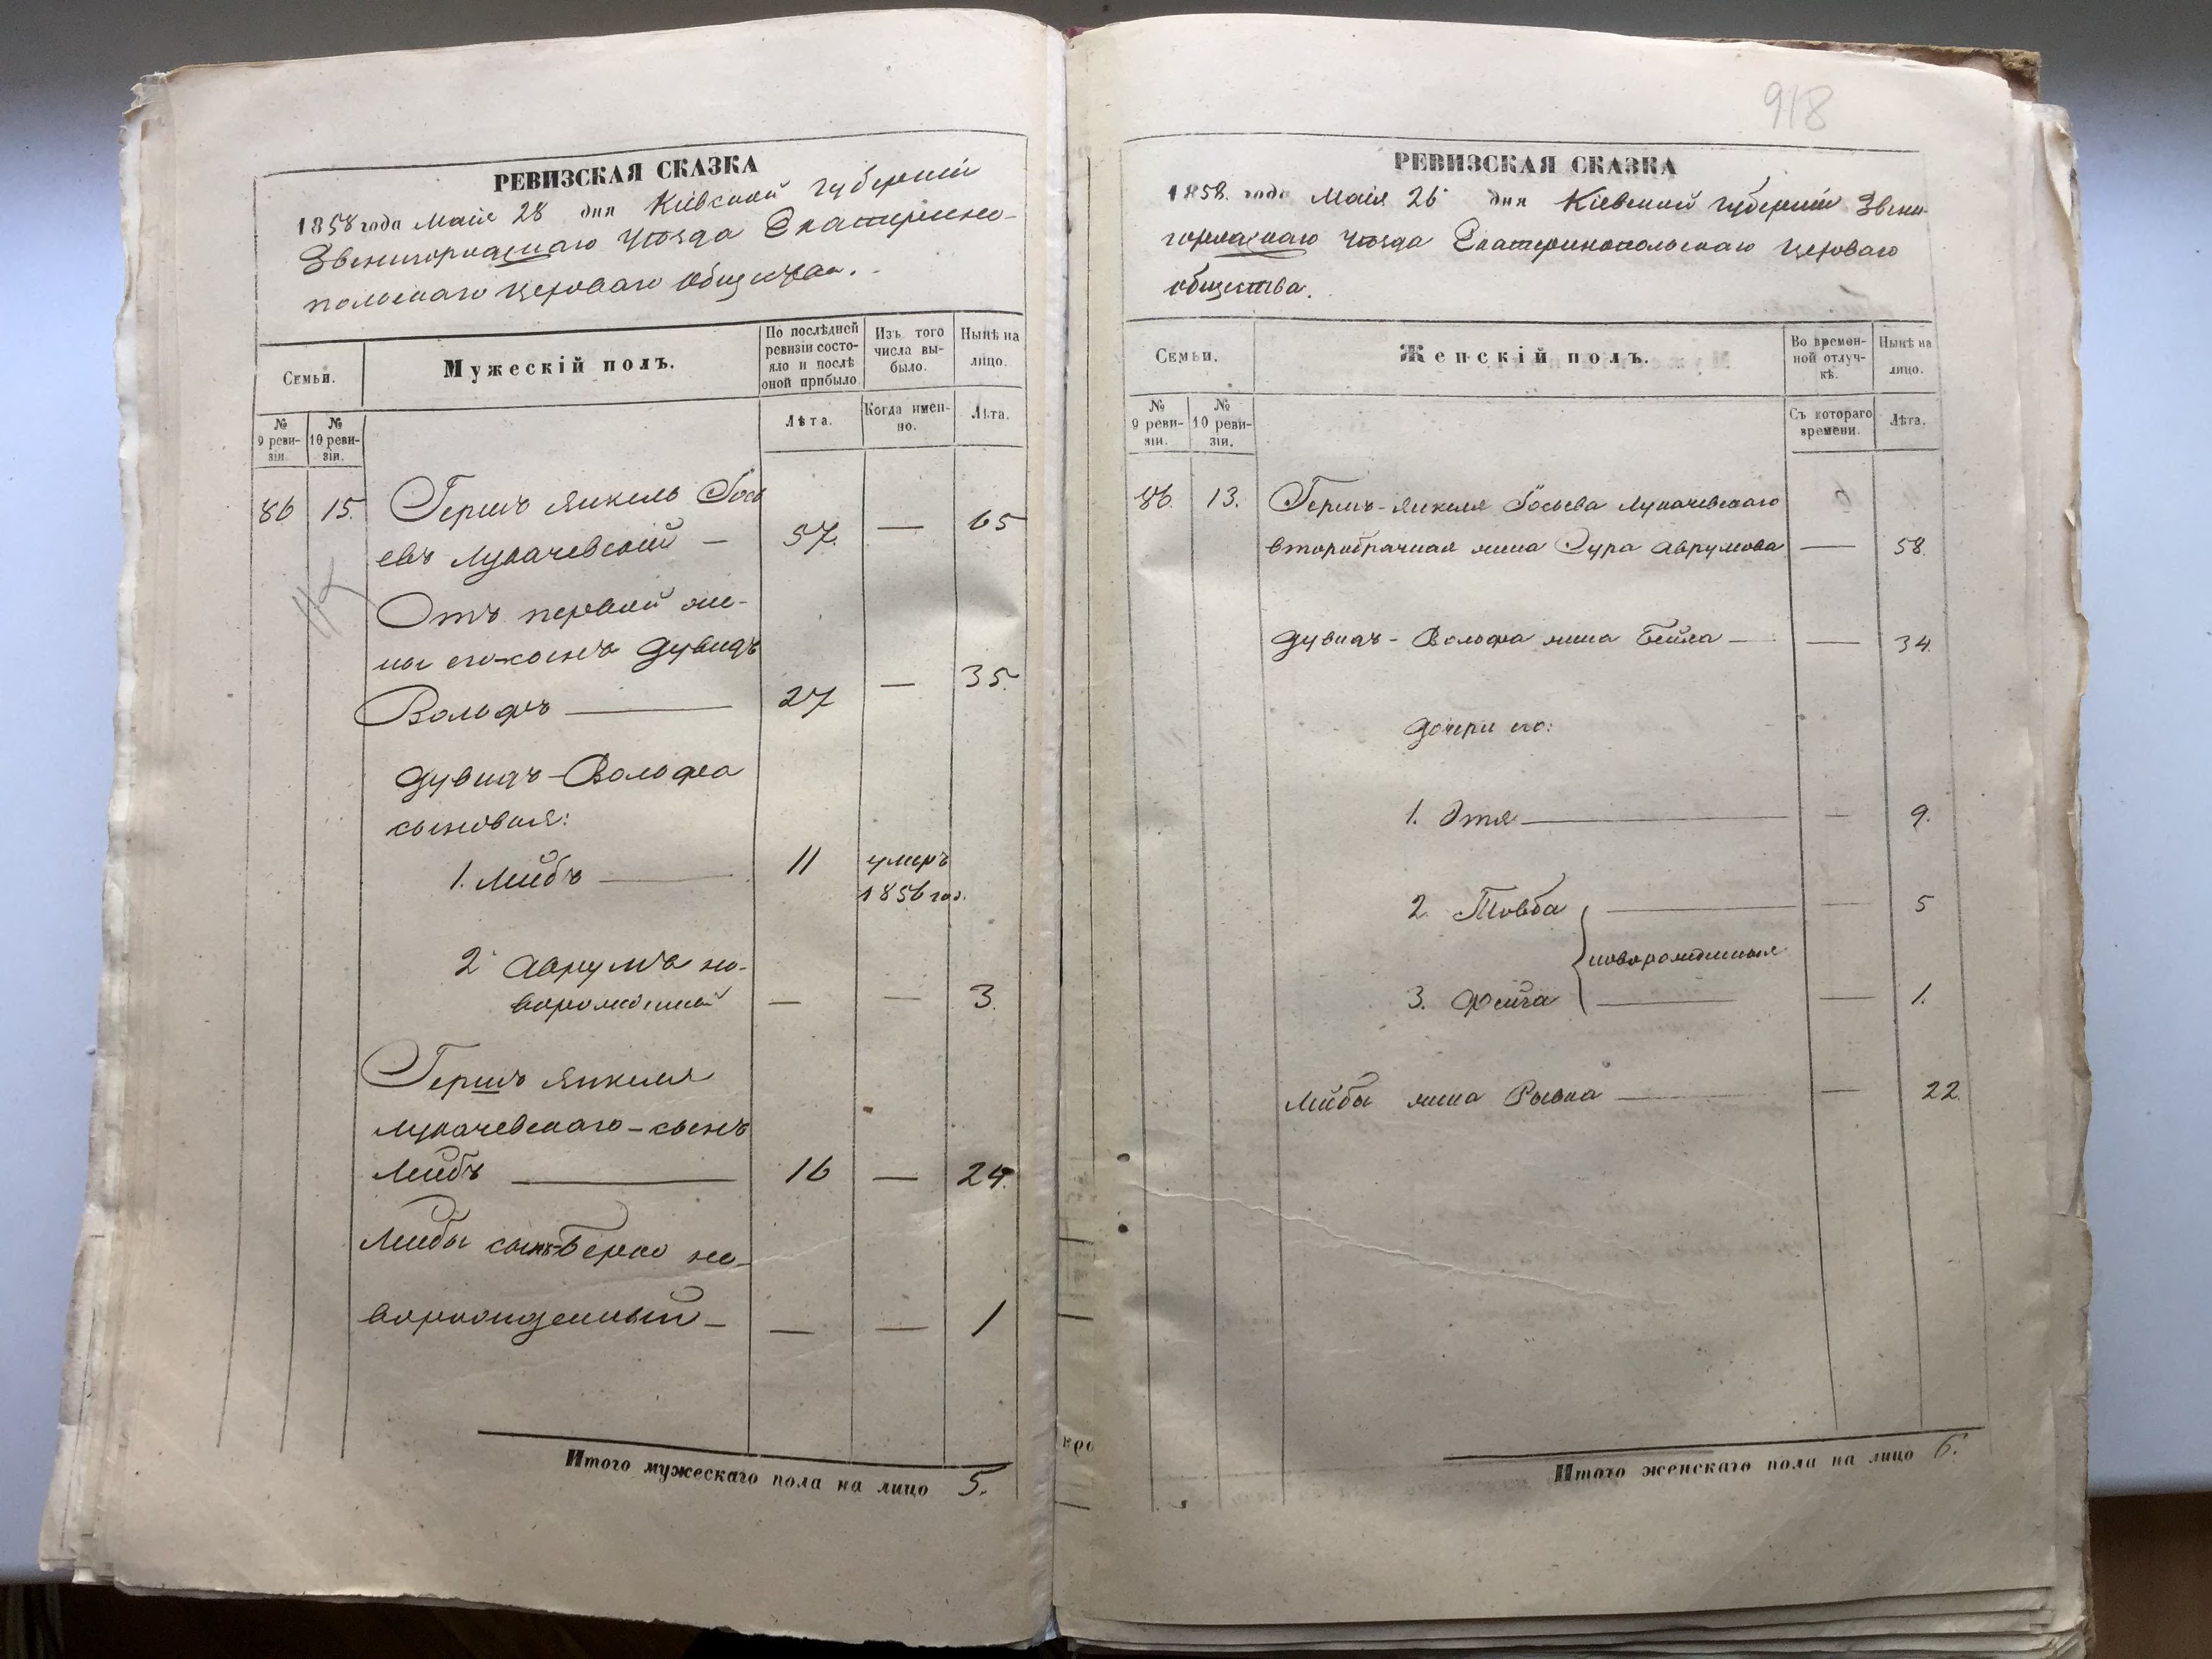 РЕВИЗСКАЯ СКАЗКА
1858 года Маія 28 дня Кіевской губерніи
Звенигородскаго уѣзда Екатерино-
польскаго цеховаго общества.
Семьи.
Мужескій полъ.
По послѣдней ревизіи состо-яло и послѣ оной прибыло.
Изъ того числа вы-было.
Нынѣ на лицо.
№ 9 реви-зіи.
№ 10 реви-зіи.
Лѣта.
Когда имен-но.
Лѣта.
86 15. Гершъ Янкель Іось
евъ Лукачевскій — 57. — 65
Отъ первой же-
ны его сынъ Дувидъ
Вольфъ — 27 — 35.
Дувидъ-Вольфа
сыновья:
1. Лейбъ — 11 умеръ
1856 год.
2 Аврумъ но-
ворожденный — — 3.
Гершъ Янкеля
Лукачевскаго - сынъ
Лейбъ — 16 — 24.
Лейбы сынъ Берко но-
ворожденный — — — 1
Итого мужескаго пола на лицо 5.
918
РЕВИЗСКАЯ СКАЗКА
1858. года Маія 26 дня Кіевской губерніи Звени-
городскаго уѣзда Екатеринопольскаго цеховаго
общества.
Семьи.
Женскій полъ.
Во времен-ной отлуч-кѣ.
Нынѣ на лицо.
№ 9 реви-зіи.
№ 10 реви-зіи.
Съ котораго времени.
Лѣта.
86. 13. Гершъ-Янкеля Іосьева Лукачевскаго
второбрачная жена Сура Аврумова — 58.
Дувидъ - Вольфа жена Бейла — — 34.
Дочери его:
1. Этя — — 9.
2. Товба — — 5
новорожденныя
3. Фейга — — 1.
Лейбы жена Рывка — — 22.
Итого женскаго пола на лицо 6.